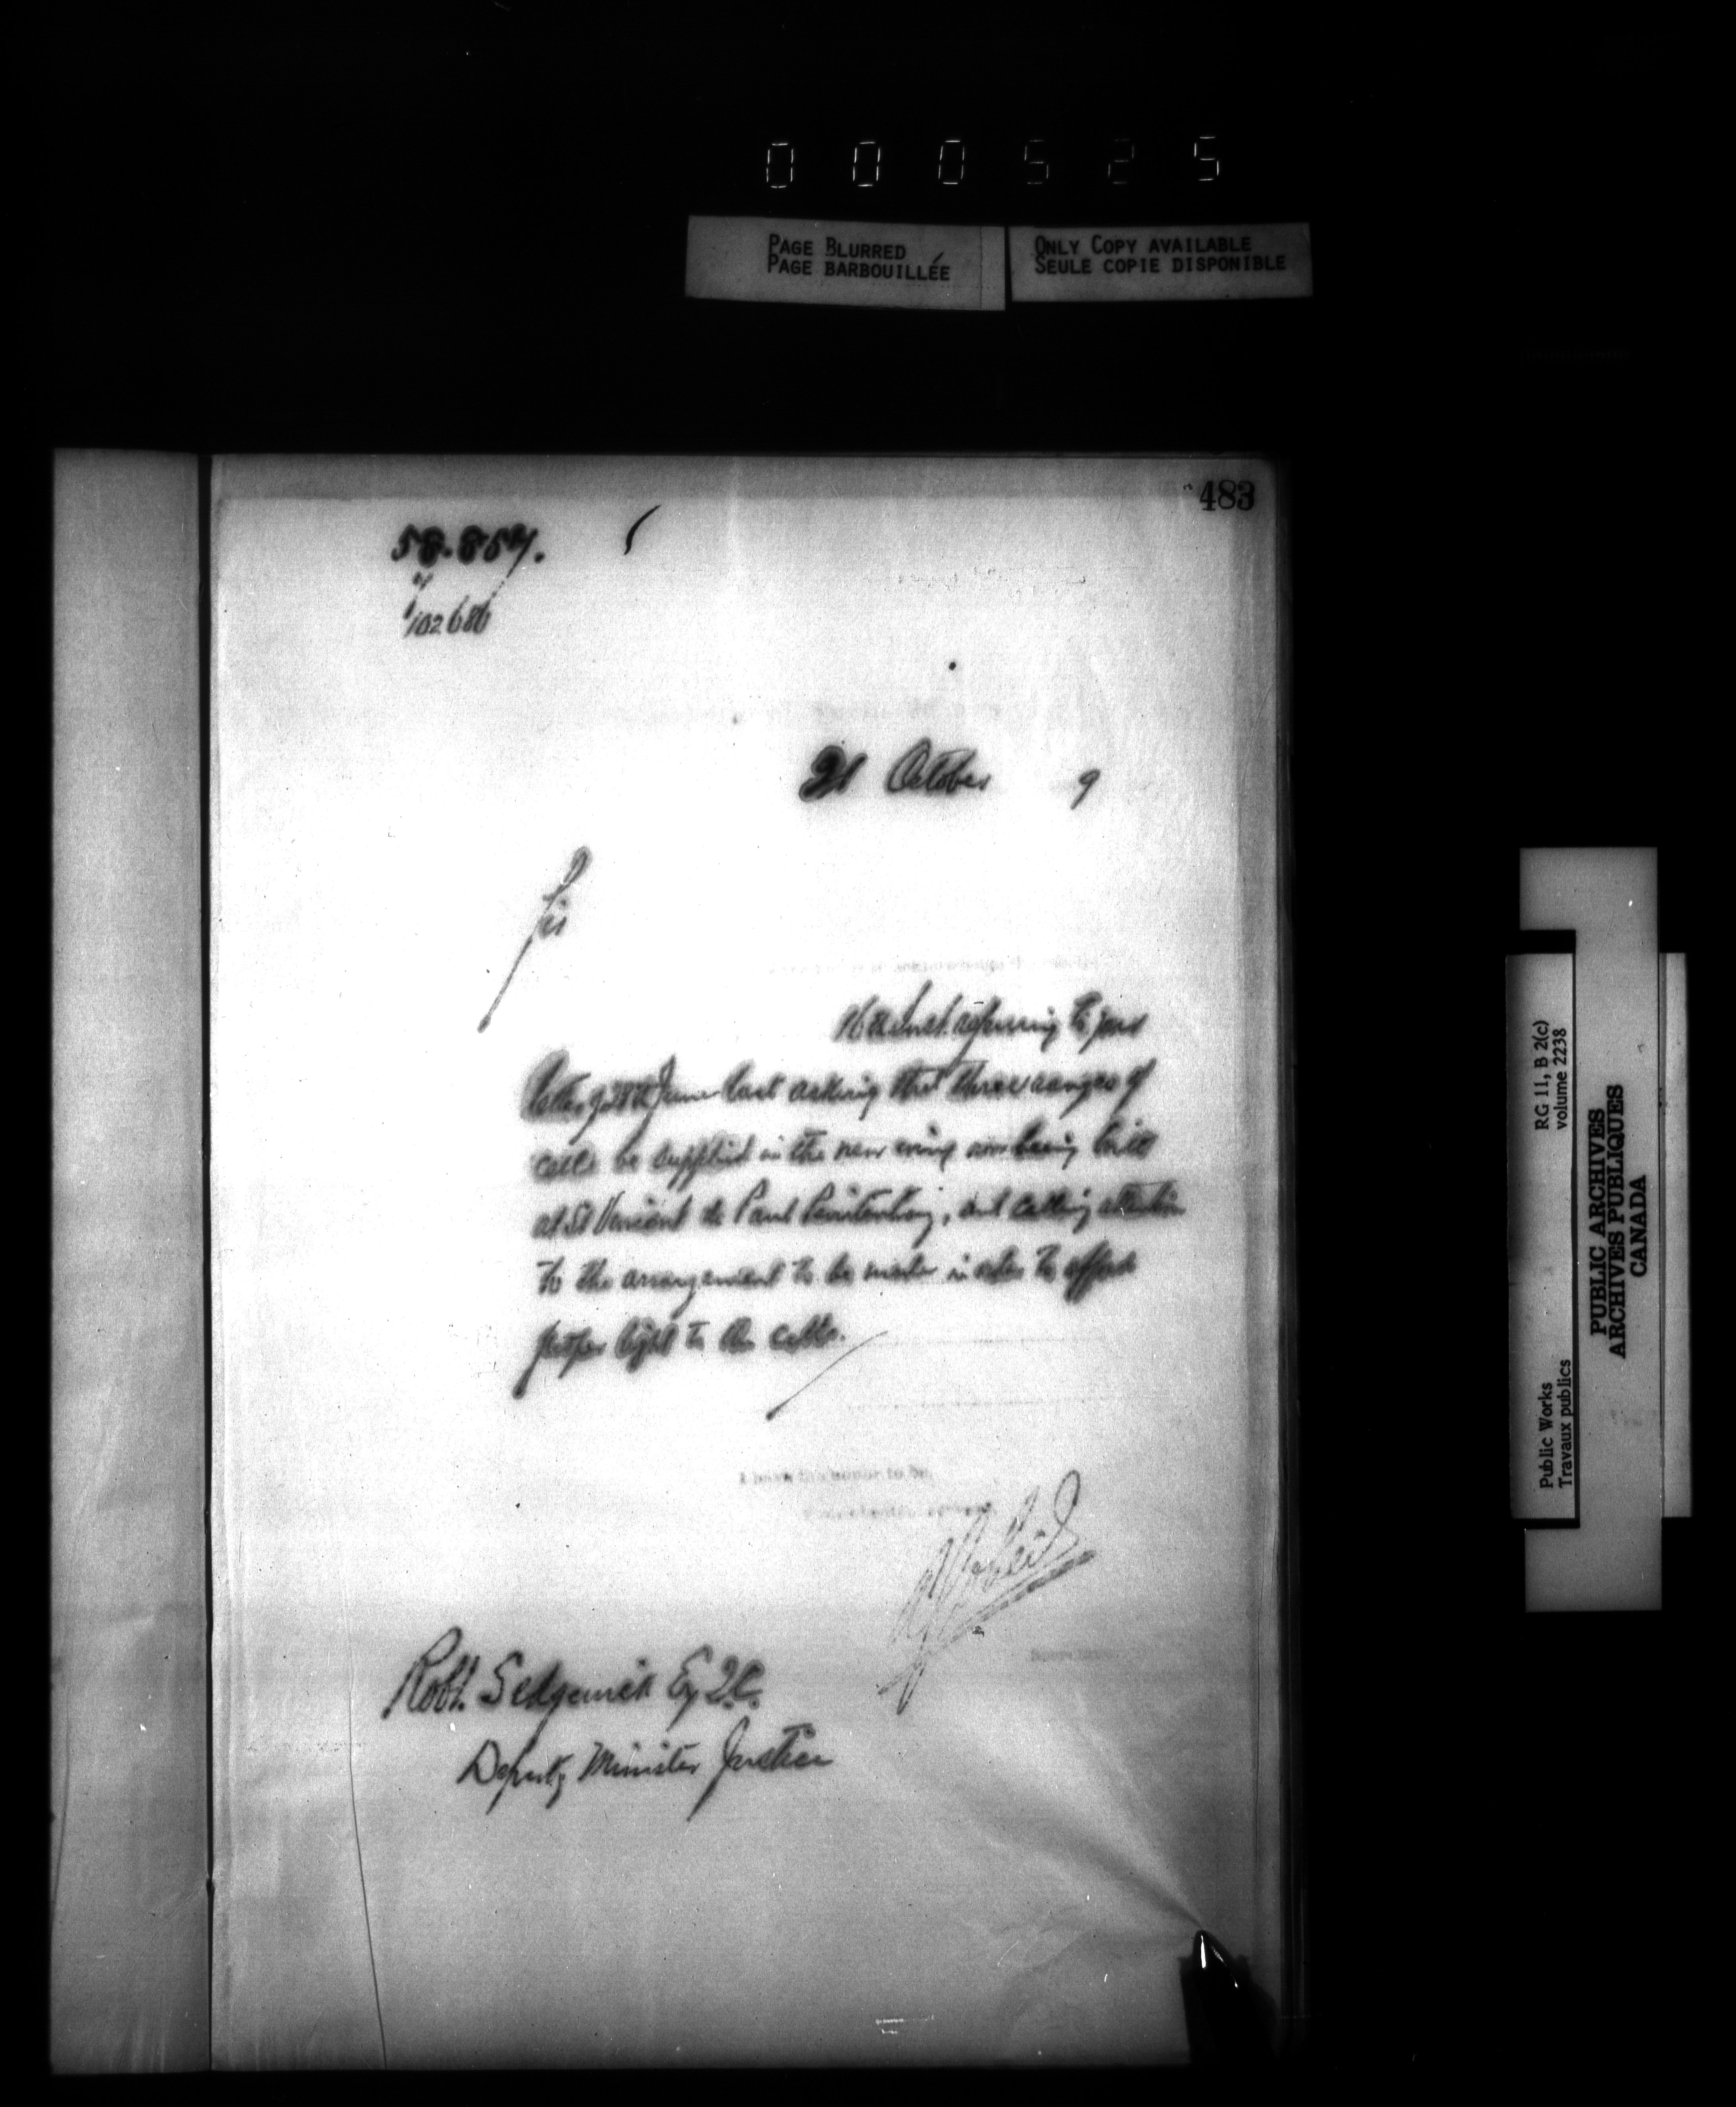 000525
PAGE BLURRED
PAGE BARBOUILLÉE
ONLY COPY AVAILABLE
SEULE COPIE DISPONIBLE
483
58.857.
102686
21 October 9
Sir
16th Inst. referring to your
letter of June last asking that three ranges of
cells be supplied in the new wing now being built
at St Vincent de Paul Penitentiary, and calling attention
to the arrangement to be made in order to afford
proper light to the cells.
I have the honor to be,
Robt. Sedgewick Esq Q.C.
Deputy Minister Justice
RG 11, B 2(c)
volume 2238
Public Works
Travaux publics
PUBLIC ARCHIVES
ARCHIVES PUBLIQUES
CANADA